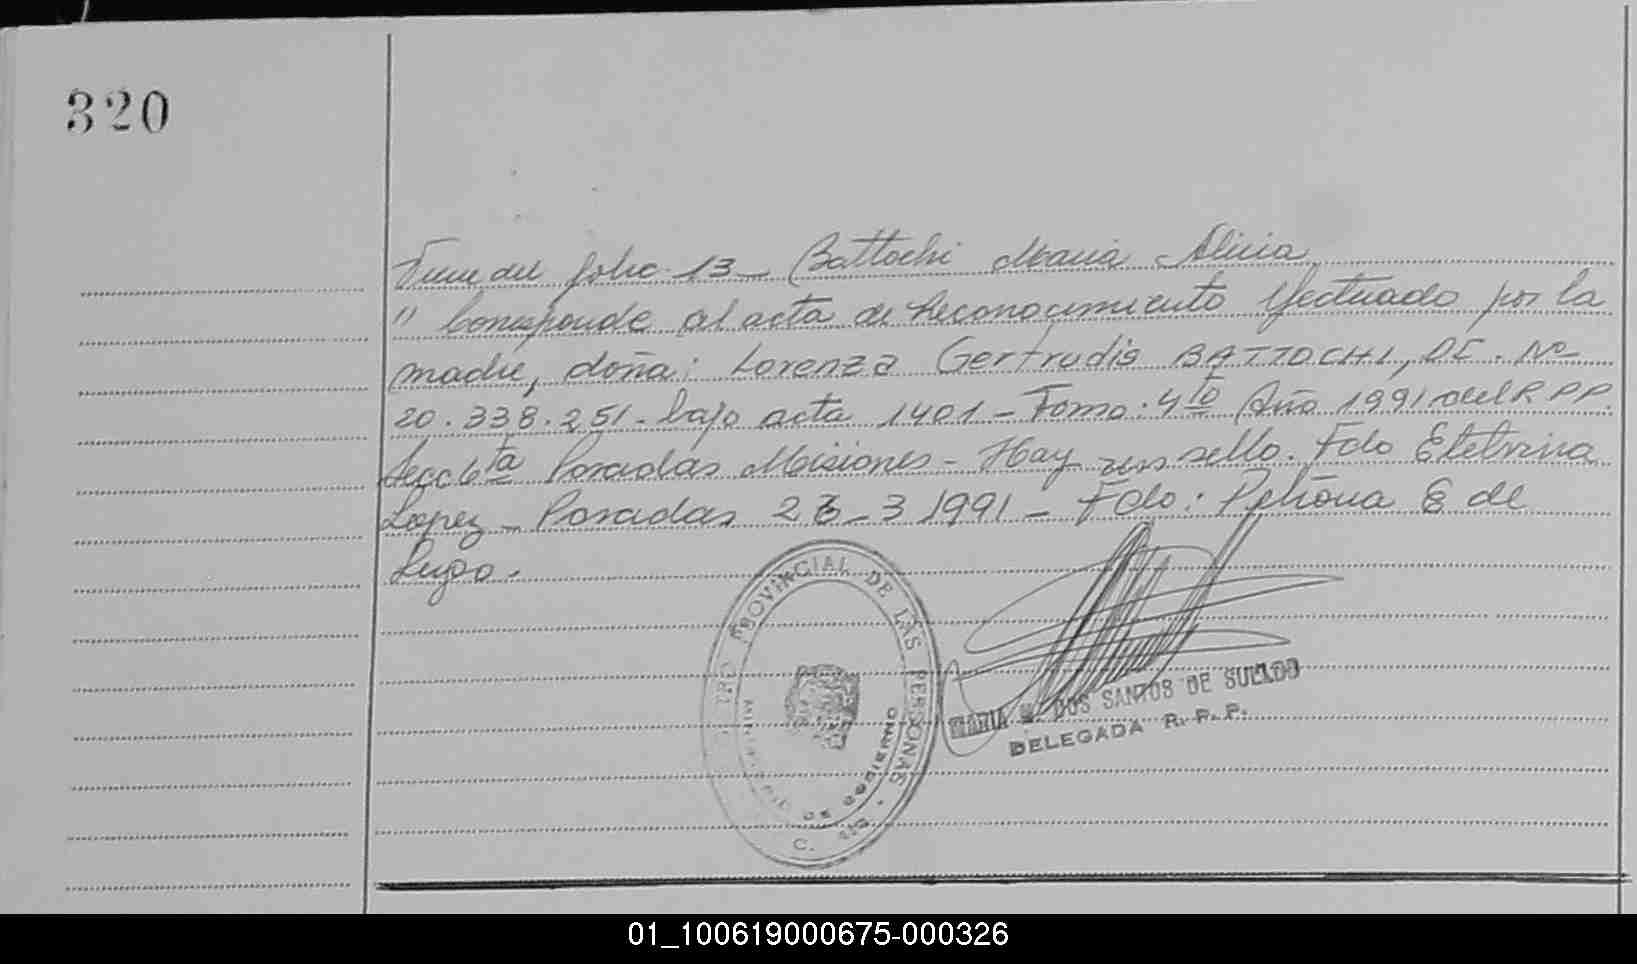 320
Viene del folio 13_ Battochi Maria Alicia
" Corresponde al acta de Reconocimiento efectuado por la
madre, doña: Lorenza Gertrudis BATTOCHI, DI. Nº
20.338.251. bajo acta 1401 - Tomo: 4to Año 1991 del R PP.
Secc 6ta Posadas Misiones - Hay un sello. Fdo Etelvina
Lopez - Posadas 26-3 1991 - Fdo: Petrona E de
Lugo.
PROVINCIAL DE LAS PERSONAS
MINISTERIO DE GOBIERNO
MARIA DOS SANTOS DE SUELDO
DELEGADA R. P. P.
01_100619000675-000326